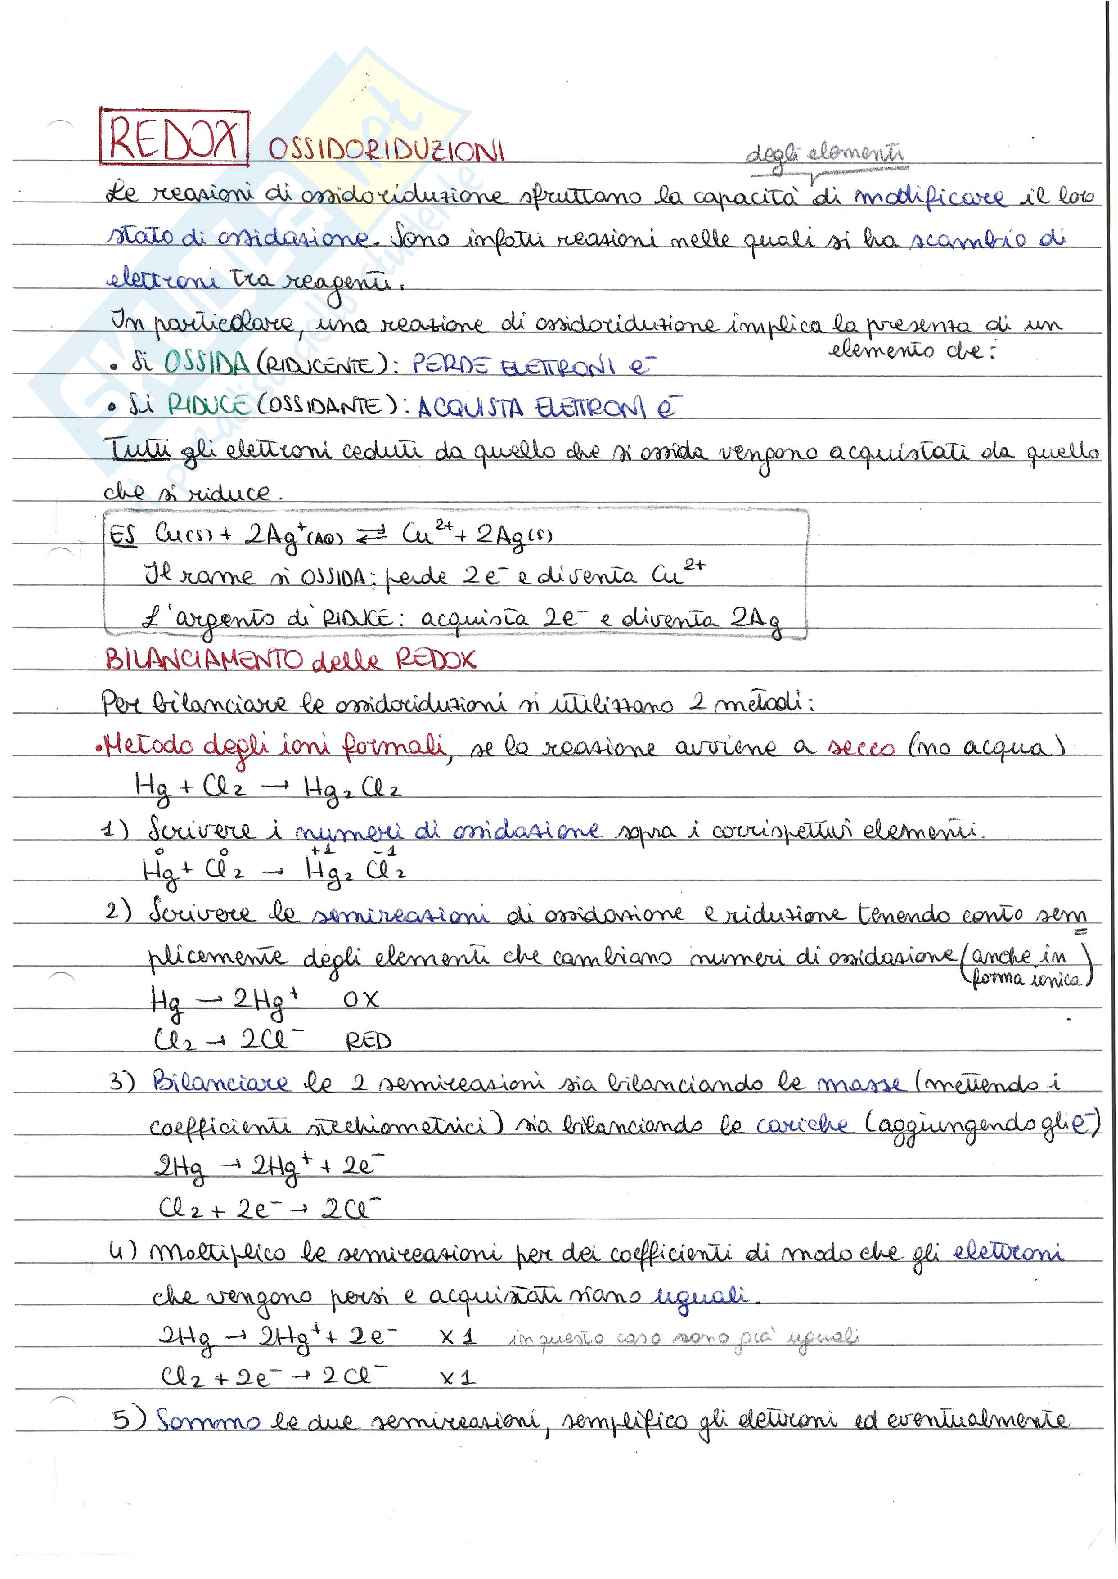 REDOX OSSIDORIDUZIONI
degli elementi
Le reazioni di ossidoriduzione sfruttano la capacità di modificare il loro
stato di ossidazione. Sono infatti reazioni nelle quali si ha scambio di
elettroni tra reagenti.
In particolare, una reazione di ossidoriduzione implica la presenza di un
elemento che:
• Si OSSIDA (RIDUCENTE): PERDE ELETTRONI e⁻
• Si RIDUCE (OSSIDANTE): ACQUISTA ELETTRONI e⁻
Tutti gli elettroni ceduti da quello che si ossida vengono acquistati da quello
che si riduce.
ES Cu(s) + 2Ag⁺(AQ) ⇄ Cu²⁺ + 2Ag(s)
Il rame si OSSIDA: perde 2e⁻ e diventa Cu²⁺
L'argento di RIDUCE: acquista 2e⁻ e diventa 2Ag
BILANCIAMENTO delle REDOX
Per bilanciare le ossidoriduzioni si utilizzano 2 metodi:
•Metodo degli ioni formali, se la reazione avviene a secco (no acqua)
Hg + Cl₂ → Hg₂Cl₂
1) Scrivere i numeri di ossidazione sopra i corrispettivi elementi.
0 0 +1 -1
Hg + Cl₂ → Hg₂ Cl₂
2) Scrivere le semireazioni di ossidazione e riduzione tenendo conto sem
plicemente degli elementi che cambiano numeri di ossidazione (anche in
forma ionica)
Hg → 2Hg⁺ OX
Cl₂ → 2Cl⁻ RED
3) Bilanciare le 2 semireazioni sia bilanciando le masse (mettendo i
coefficienti stechiometrici) sia bilanciando le cariche (aggiungendo gli e⁻)
2Hg → 2Hg⁺ + 2e⁻
Cl₂ + 2e⁻ → 2Cl⁻
4) Moltiplico le semireazioni per dei coefficienti di modo che gli elettroni
che vengono persi e acquistati siano uguali.
2Hg → 2Hg⁺ + 2e⁻ x1 in questo caso sono già uguali
Cl₂ + 2e⁻ → 2Cl⁻ x1
5) Sommo le due semireazioni, semplifico gli elettroni ed eventualmente